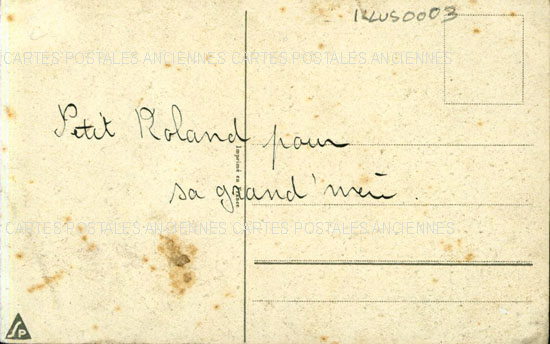 IKLUS0003
CARTES POSTALES ANCIENNES CARTES POSTALES ANCIENNES
Petit Roland pour
Imprimé en
sa grand'mère.
CARTES POSTALES ANCIENNES CARTES POSTALES ANCIENNES
SP